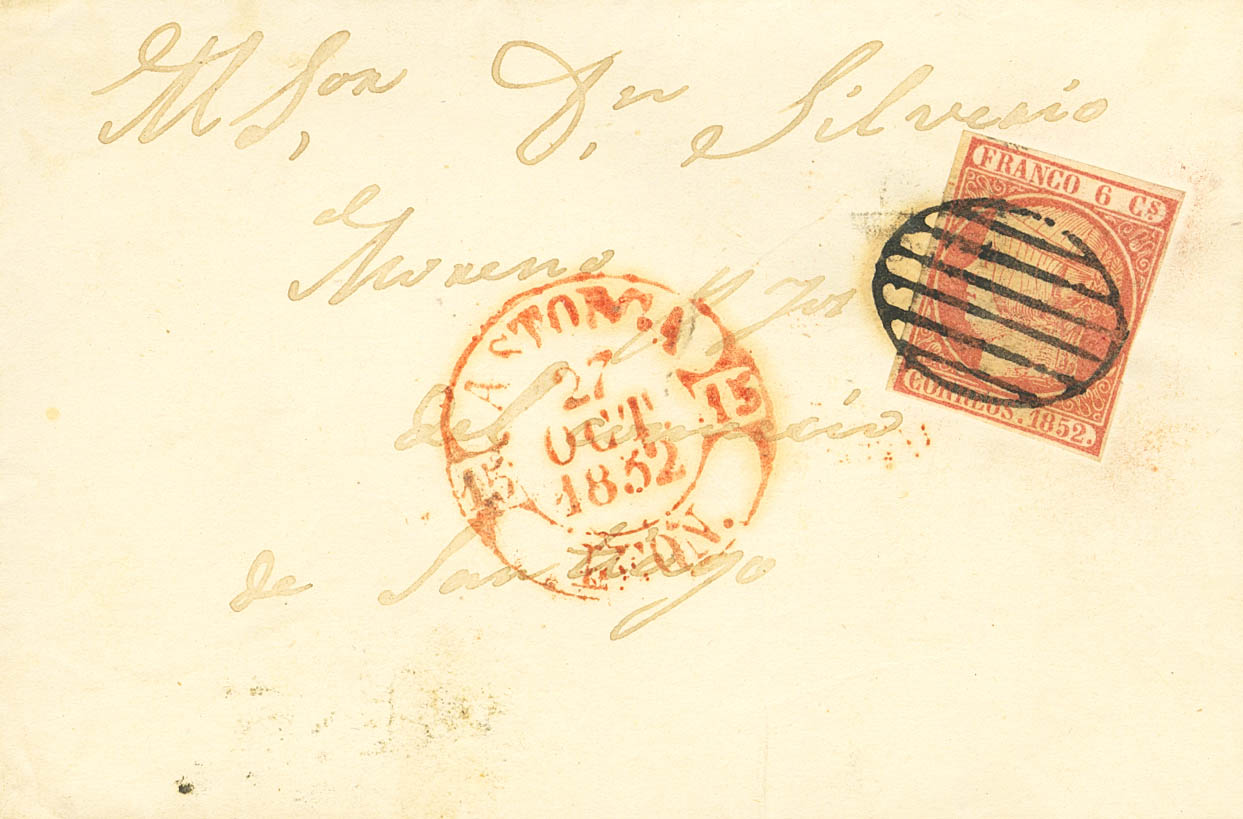 M Sor Dn Silverio
FRANCO 6 Cs
Moreno
ASTORGA
27
OCT.
1852
15
15
LEON.
del comercio
CORREOS. 1852.
de Santiago